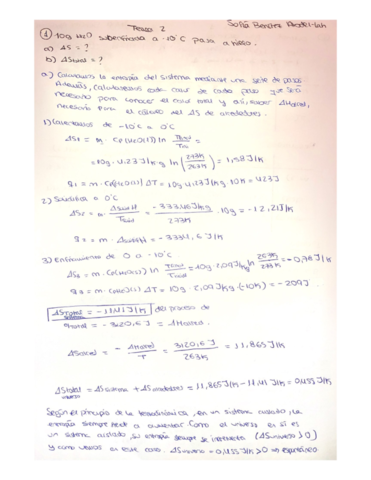 Tarea 2
① 10g H2O subenfriada a -10°C pasa a hielo.
a) ΔS = ?
b) ΔStotal = ?
a) Calculamos la entropía del sistema mediante una serie de pasos.
Además, calcularemos este calor de cada paso que será
necesario para conocer el calor total y así, hacer ΔHtotal,
necesario para el cálculo del ΔS de alrededores.
1) Calentamos de -10°C a 0°C
ΔS1 = m · Cp(H2O(l)) ln Tfinal/Tini =
= 10g · 4.23 J/K·g ln (273K/263K) = 1,58 J/K
q1 = m · Cp(H2O(l)) ΔT = 10g · 4.23 J/K·g · 10K = 423J
2) Solidifica a 0°C
= -333,46 J/g · 10g = -12,21 J/K
273K
= -3334,6 J/K
3) Enfriamiento de 0 a -10°C
ΔS3 = m · Cp(H2O(s)) ln = 10g · 2,09 J/K·g ln 263K/273K = -0,78 J/K
q3 = m · Cp(H2O(s)) ΔT = 10g · 2,09 J/K·g · (-10K) = -209J
ΔStotal = -11,41 J/K del proceso de
qtotal = -3120,6 J = ΔHtotal
= - ΔHtotal/T = 3120,6 J/263K = 11,865 J/K
ΔStotal = ΔSsistema + ΔSalrededores = 11,865 J/K - 11,41 J/K = 0,455 J/K
universo
Según el principio de la termodinámica, en un sistema aislado, la
entropía siempre tiende a aumentar. Como el universo en sí es
un sistema aislado, su entropía siempre se incrementa (ΔSuniverso > 0)
y como vemos en este caso, ΔSuniverso = 0,455 J/K > 0 ⇒ espontáneo